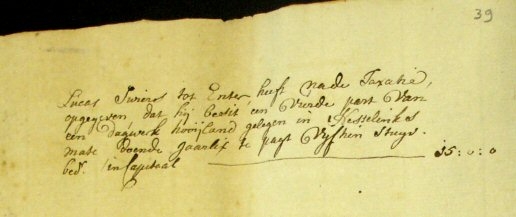 39
Lucas Swiers tot Enter, heeft na de Taxatie,
opgegeven dat hij besit een vierde part van
een dagwerk hooijland gelegen in Hesselinks
mate doende jaarlix te pagt vyftien stuyv.
bedr. in Capitaal 15:0:0